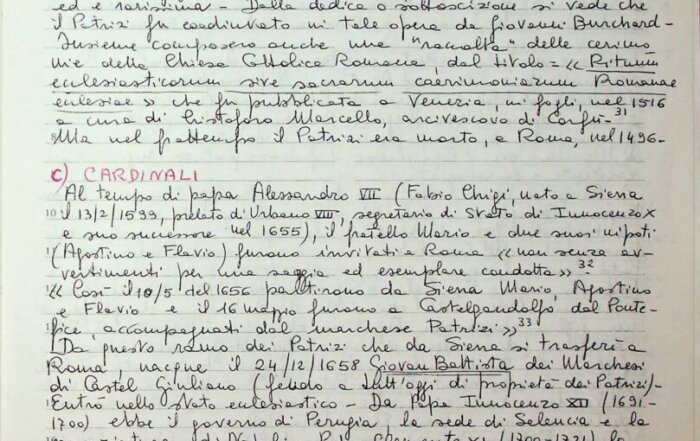 ed è rarissima - Dalla dedica o sottoscizione si vede che
il Patrizi fu coadiuvato in tale opera da Giovanni Burchard -
Insieme composero anche una "raccolta" delle cerimo
nie della Chiesa Cattolica Romana, dal titolo = « Rituum
eclesiasticorum sive sacrarum caerimoniarum Romanae
eclesiae » che fu pubblicata a Venezia, in fogli, nel 1516
a cura di Cristoforo Marcello, arcivescovo di Corfù - 31
Ma nel frattempo il Patrizi era morto, a Roma, nel 1496 -
c) CARDINALI
Al tempo di papa Alessandro VII (Fabio Chigi, nato a Siena
il 13/2/1599, prelato d'Urbano VIII, segretario di Stato di Innocenzo X
e suo successore nel 1655), il fratello Mario e due suoi nipoti
(Agostino e Flavio) furono invitati a Roma « non senza av-
vertimenti per una saggia ed esemplare condotta ». 32
« Così il 10/5 del 1656 partirono da Siena Mario, Agostino
e Flavio e il 16 maggio furono a Castelgandolfo dal Ponte-
fice, accompagnati dal marchese Patrizi » 33
Da questo ramo dei Patrizi che da Siena si trasferì a
Roma, nacque il 24/12/1658 Giovan Battista dei Marchesi
di Castel Giuliano (feudo a tutt'oggi di proprietà dei Patrizi) -
Entrò nello stato eclesiastico - Da Papa Innocenzo XII (1691-
1700) ebbe il governo di Perugia, la sede di Seleucia e la